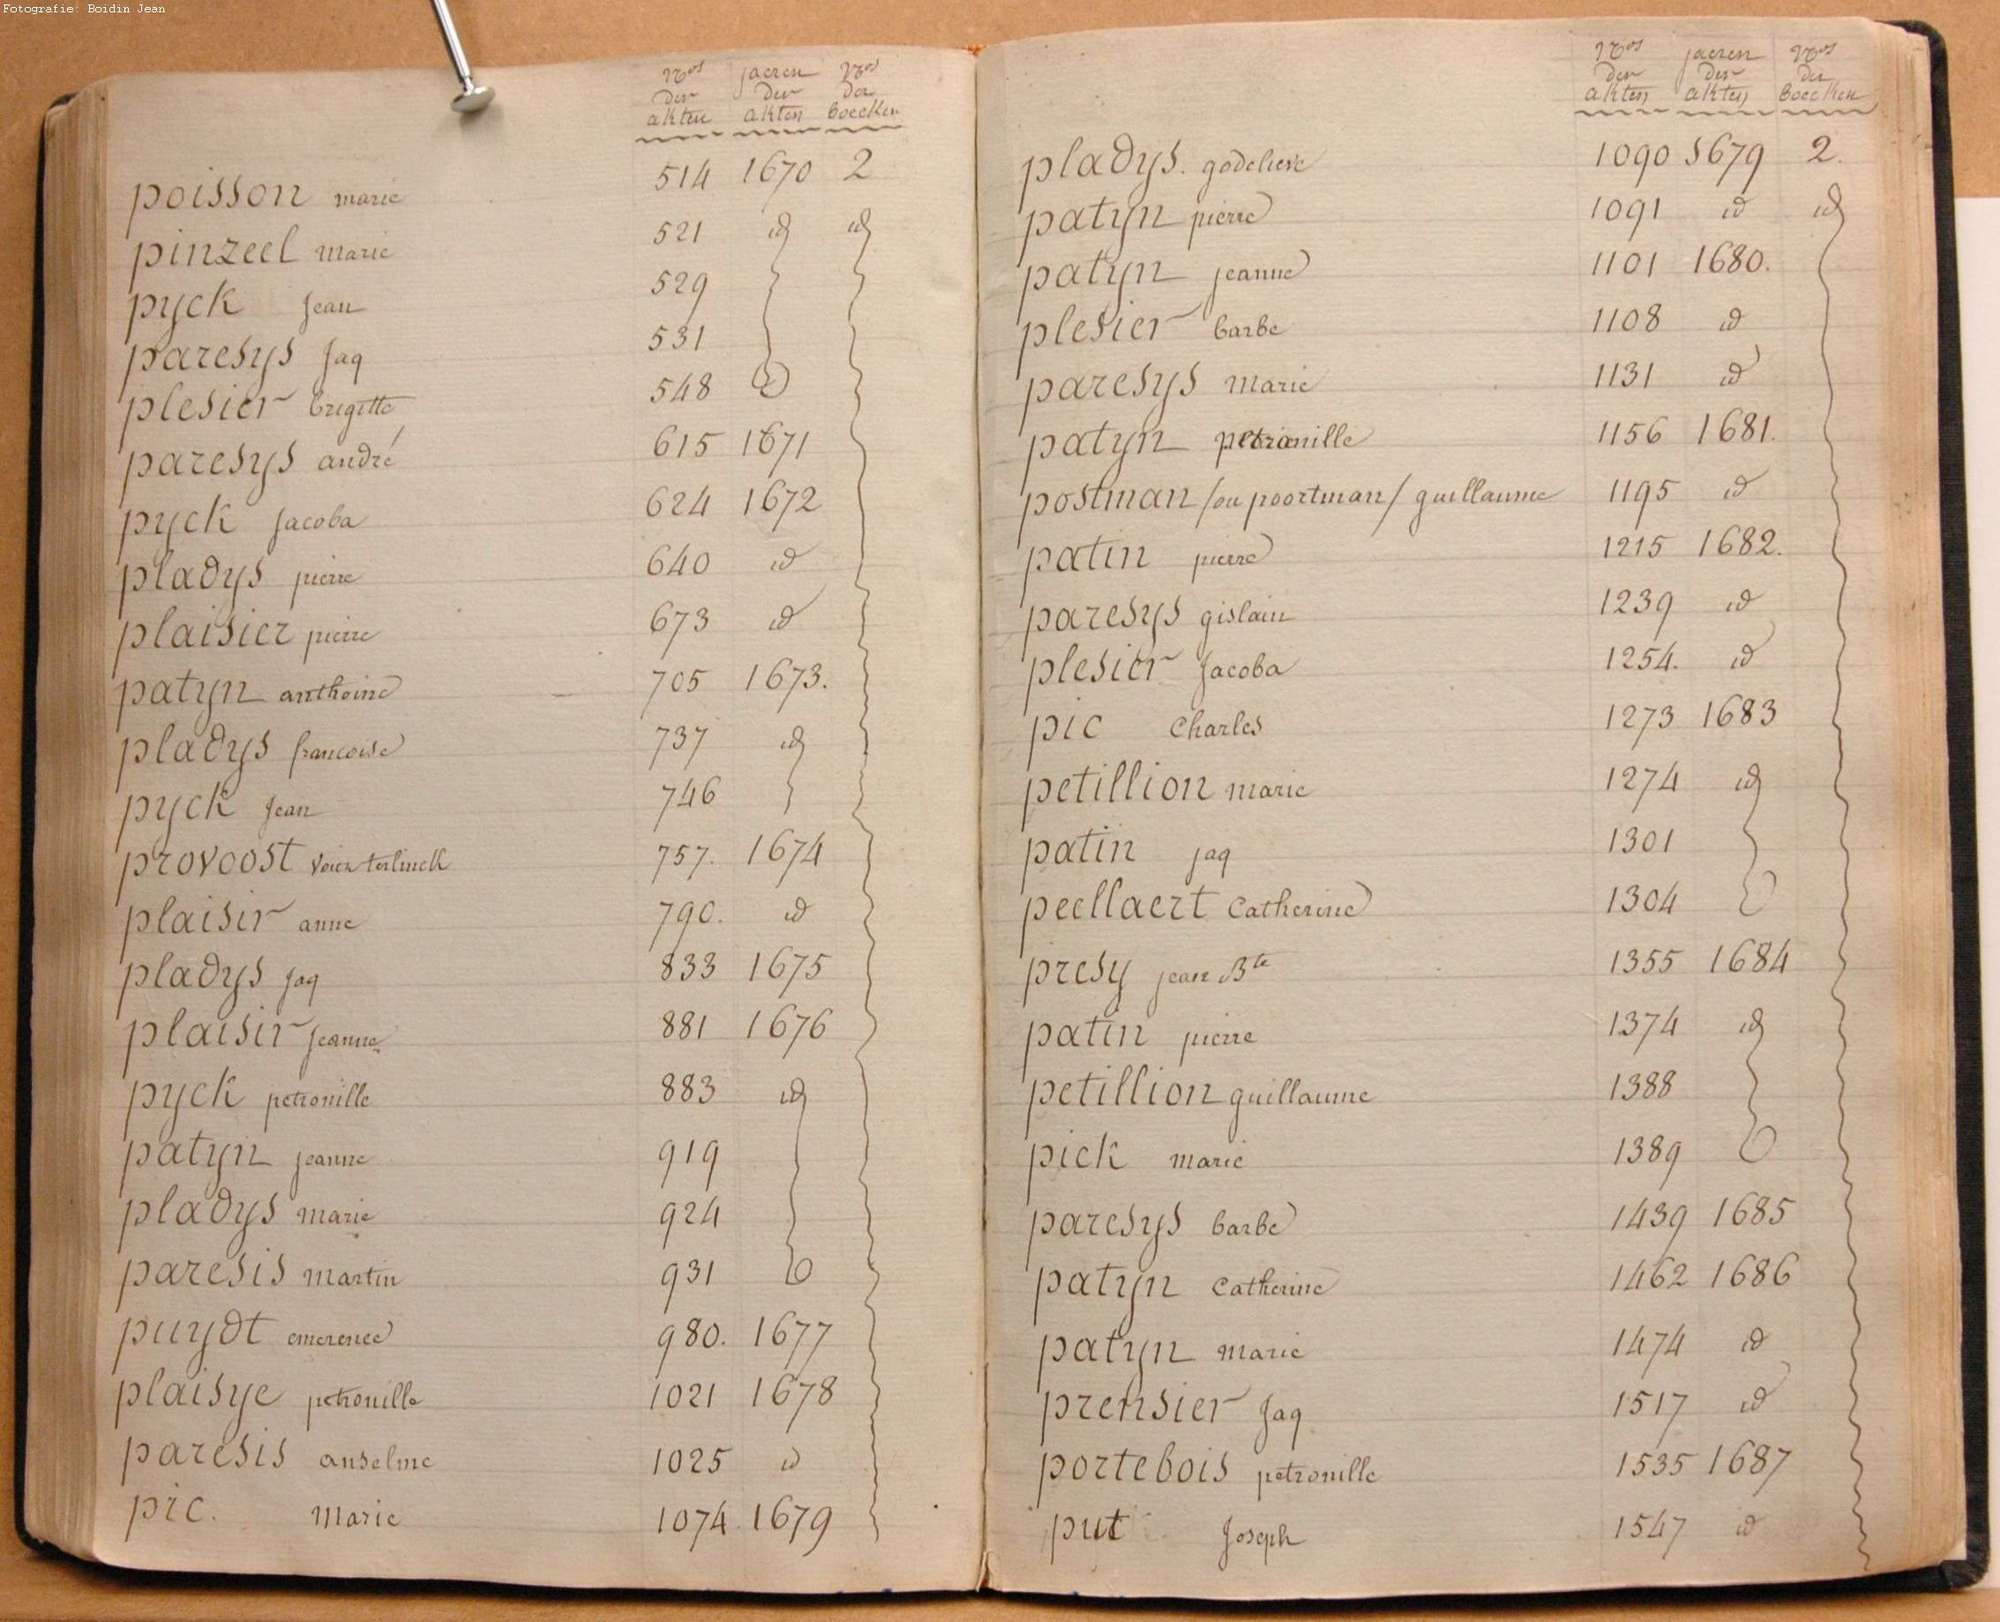 Fotografie: Boidin Jean
Nos der akten jaeren der akten Nos der boecken
poisson marie 514 1670 2
pinzeel marie 521 id id
pyck Jean 529
paresys Jaq 531
plesier brigitte 548
paresys andré 615 1671
pyck Jacoba 624 1672
pladys pierre 640 id
plaisier pierre 673 id
patyn anthoine 705 1673.
pladys francoise 737 id
pyck Jean 746
provoost voiez terlinck 757. 1674
plaisir anne 790. id
pladys Jaq 833 1675
plaisir Jeanne 881 1676
pyck petronille 883 id
patyn Jeanne 919
pladys marie 924
paresis martin 931
puydt emerence 980. 1677
plaisye petronille 1021 1678
paresis anselme 1025 id
pic. Marie 1074 1679
Nos der akten jaeren der akten Nos der boecken
pladys. godelieve 1090 1679 2.
patyn pierre 1091 id id
patyn jeanne 1101 1680.
plesier barbe 1108 id
paresys marie 1131 id
patyn petronille 1156 1681.
postman /ou poortman/ guillaume 1195 id
patin pierre 1215 1682.
paresys gislain 1239 id
plesier Jacoba 1254. id
pic Charles 1273 1683
petillion marie 1274 id
patin jaq 1301
peellaert Catherine 1304
presy jean Bte 1355 1684
patin pierre 1374 id
petillion guillaume 1388
pick marie 1389
paresys barbe 1439 1685
patyn Catherine 1462 1686
patyn marie 1474 id
prensier Jaq 1517 id
portebois petronille 1535 1687
put Joseph 1547 id